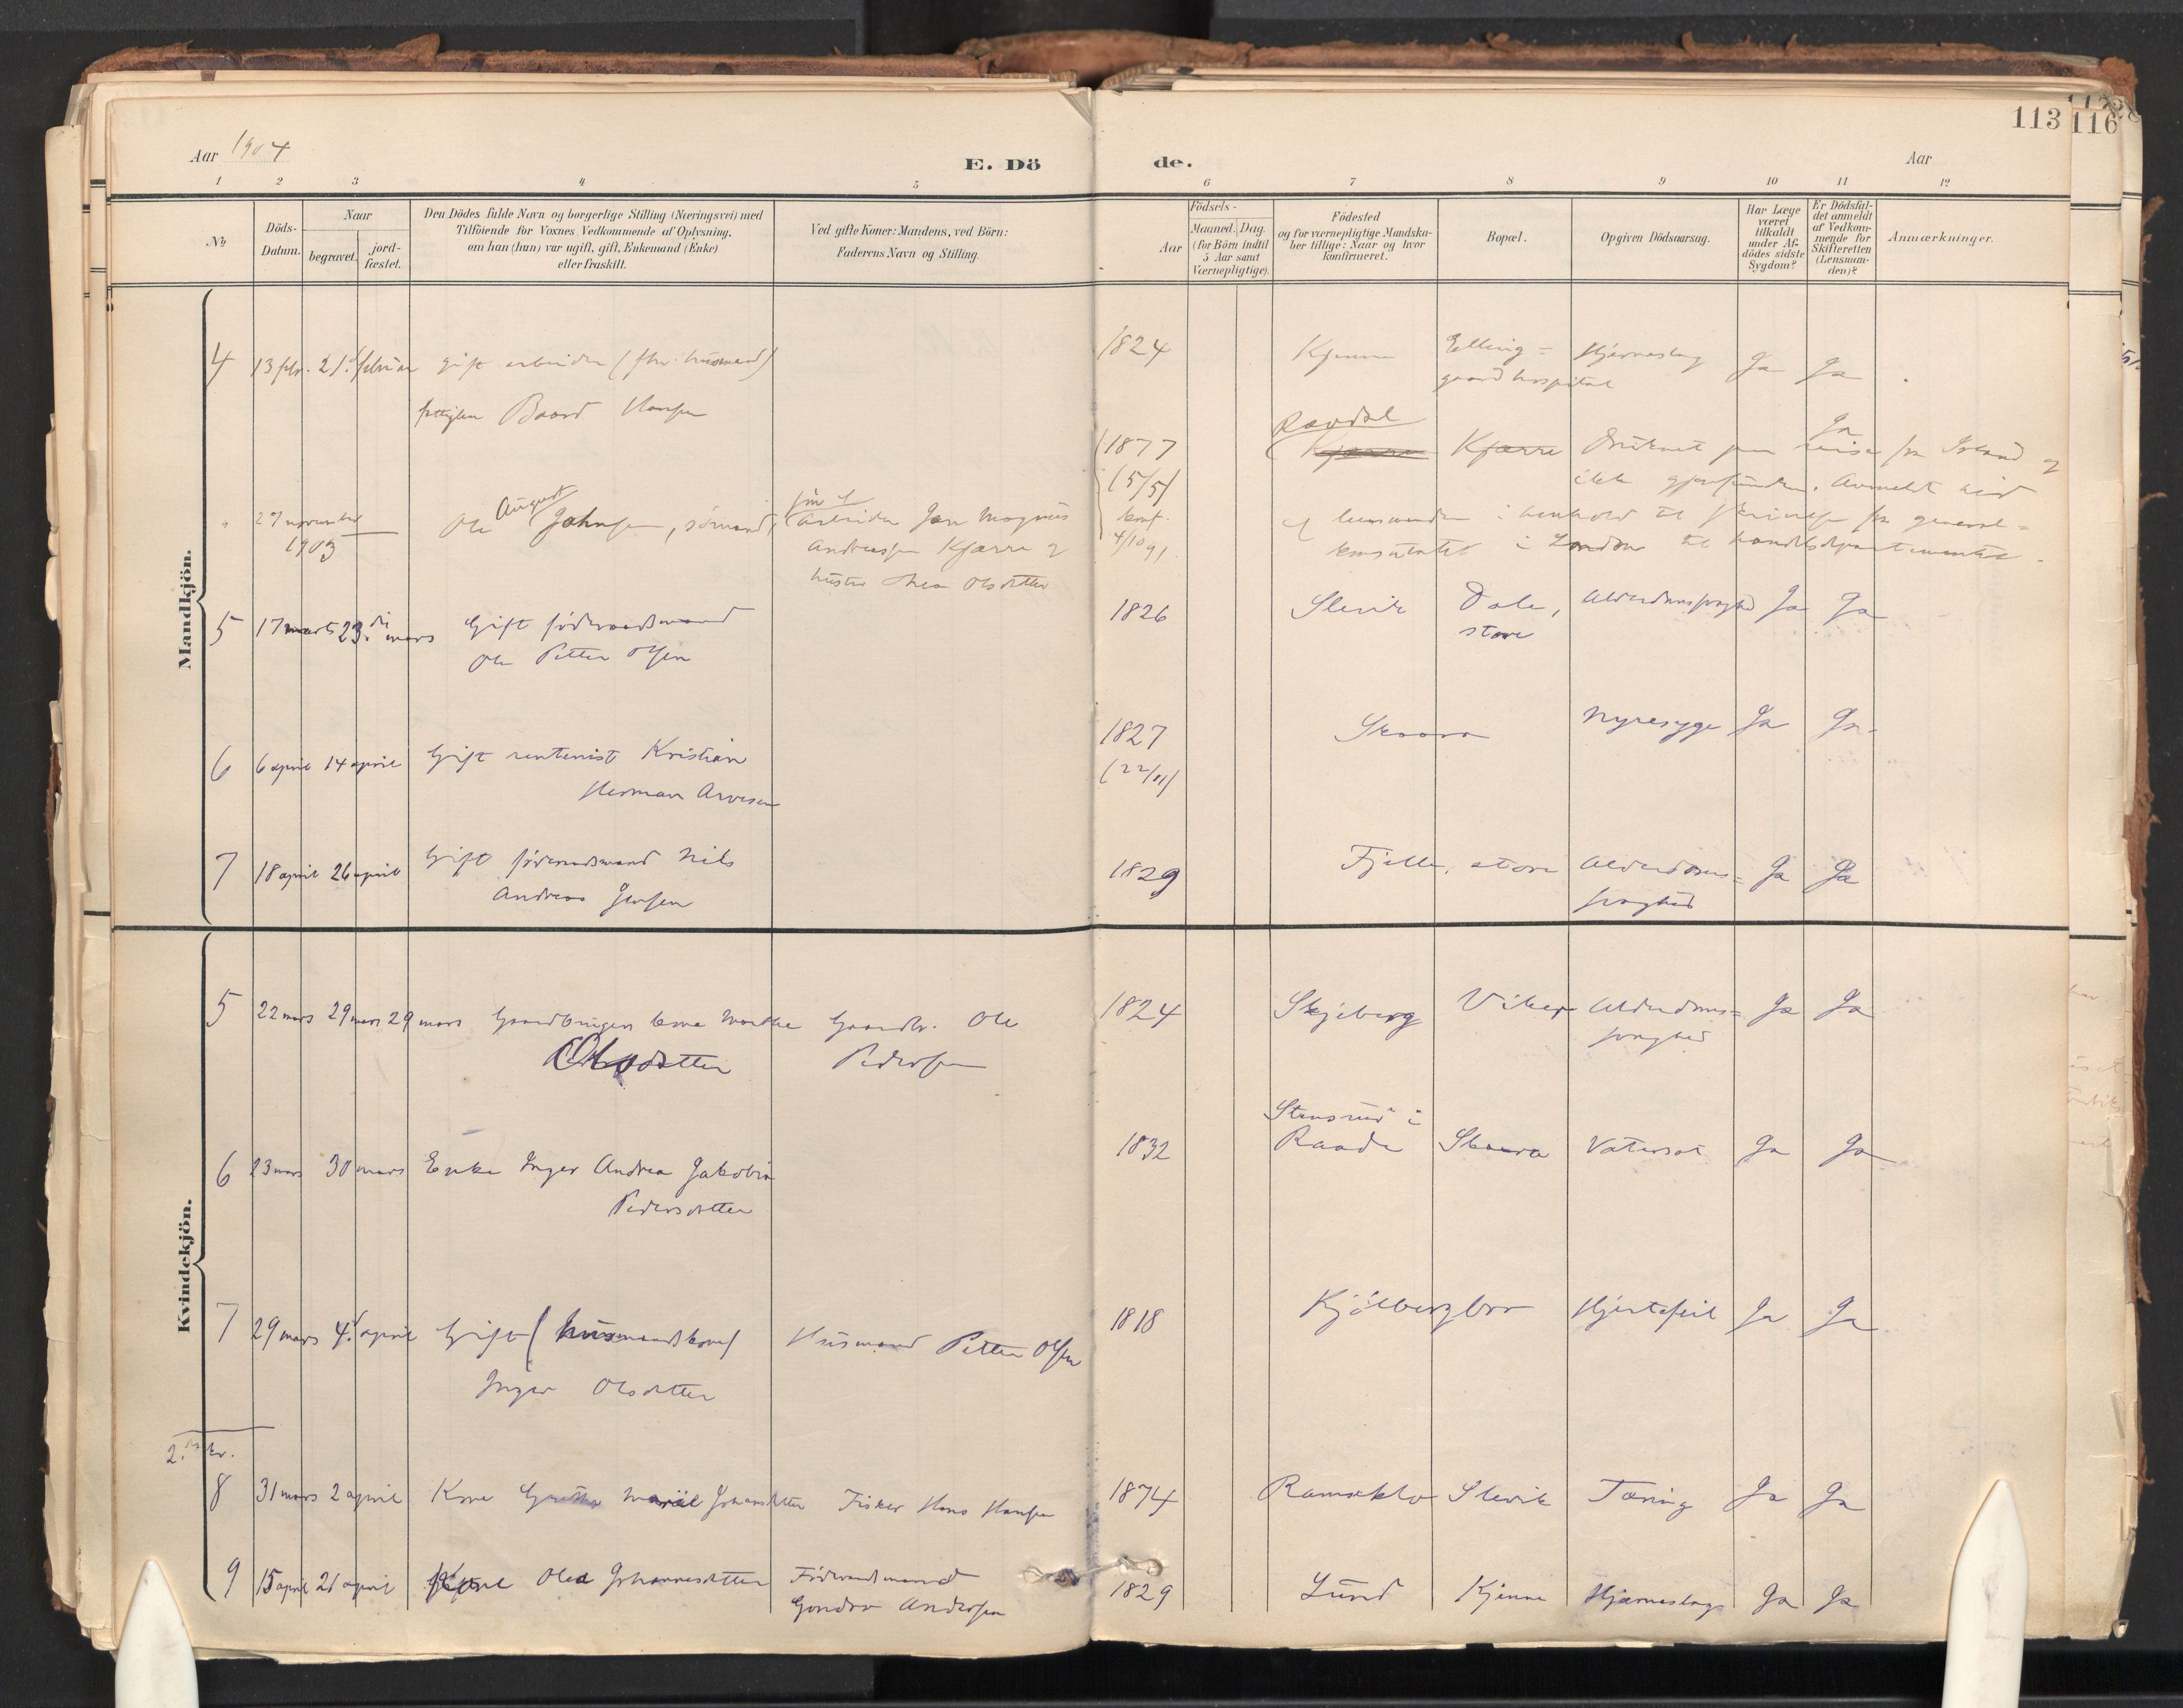 113 116
Aar 1904 E. Dö de. Aar
1 2 3 4 5 6 7 8 9 10 11 12
No
Döds-Datum.
Naar
begravet.
jord-fæstet.
Den Dödes fulde Navn og borgerlige Stilling (Næringsvei) med
Tilföiende for Voxnes Vedkommende af Oplysning,
om han (hun) var ugift, gift, Enkemand (Enke)
eller fraskilt.
Ved gifte Koner: Mandens, ved Börn:
Faderens Navn og Stilling.
Födsels-
Aar
Maaned. Dag.
(for Börn indtil
5 Aar samt
Værnepligtige).
Födested
og for værnepligtige Mandska-
ber tillige: Naar og hvor
konfirmeret.
Bopæl.
Opgiven Dödsaarsag.
Har Læge
været
tilkaldt
under Af-
dödes sidste
Sygdom?
Er Dödsfal-
det anmeldt
af Vedkom-
mende for
Skifteretten
(Lensman-
den)?
Anmærkninger.
Mandkjön.
4 13 febr. 21. februar gift arbeider (fhv. husmand) 1824 Kjenne Elling= Hjerneslag Ja Ja
fattiglem Baard Hansen gaard hospital
Raudal Ja
1877 Kjærre Kjærre Druknet paa reise fra Island og
(5/5) ikke gjenfunden. Anmeldt ved
" 27 november Ole August Johnsen, sömand, sön af Arbeider Jon Magnus konf. lensmanden i henhold til skrivelse fra general=
1903 Andreassen Kjærre og 4/10 91. konsulatet i London til handelsdepartementet.
hustru Thea Olsdatter
5 17 marts 23. mars Gift föderaadsmand 1826 Slevik Dale, Alderdomssvaghed Ja Ja
Ole Petter Olsen store
6 6 april 14 april Gift rentenist Kristian 1827 Skaara Nyresyge Ja Ja
Herman Arvesen (22/11)
7 18 april 26 april Gift föderaadsmand Nils 1829 Fjelle, store Alderdoms= Ja Ja
Andreas Jensen svaghed
Kvindekjön.
5 22 mars 29 mars 29 mars Gaardbrugers kone Marthe Gaardbr. Ole 1824 Skjeberg Viker Alderdoms= Ja Ja
Olsdatter Pedersen svaghed
Stensrud i
6 23 mars 30 mars Enke Inger Andrea Jakobine 1832 Raade Skaara Vatersot Ja Ja
Pedersdatter
7 29 mars 4. april Gift (husmandskone) Husmand Petter Olsen 1818 Kjölbergbro Hjertefeil Ja Ja
Inger Olsdatter
2. kv.
8 31 mars 2 april Kone Johansdatter Fisker Hans Hansen 1874 Ramseklo Slevik Tæring Ja Ja
9 15 april 21 april Olea Johannesdatter Föderaadsmand 1829 Lund Kjenne Hjerneslag Ja Ja
Andersen